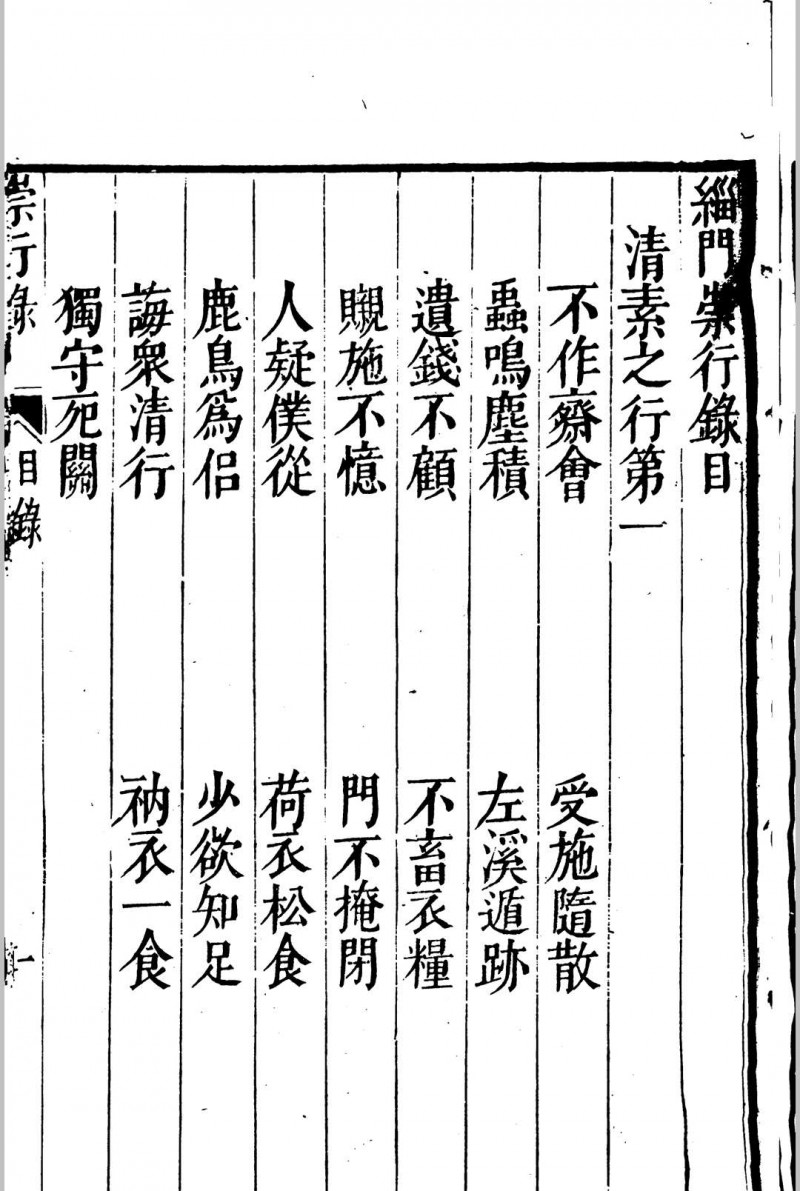 緇門崇行錄目
清素之行第一
不作齋會 受施隨散
蟲鳴塵積 左溪遁跡
遺錢不顧 不畜衣糧
䞋施不憶 門不掩閉
人疑僕從 荷衣松食
鹿鳥爲侶 少欲知足
誨衆清行 衲衣一食
獨守死關
崇行錄 目錄 一